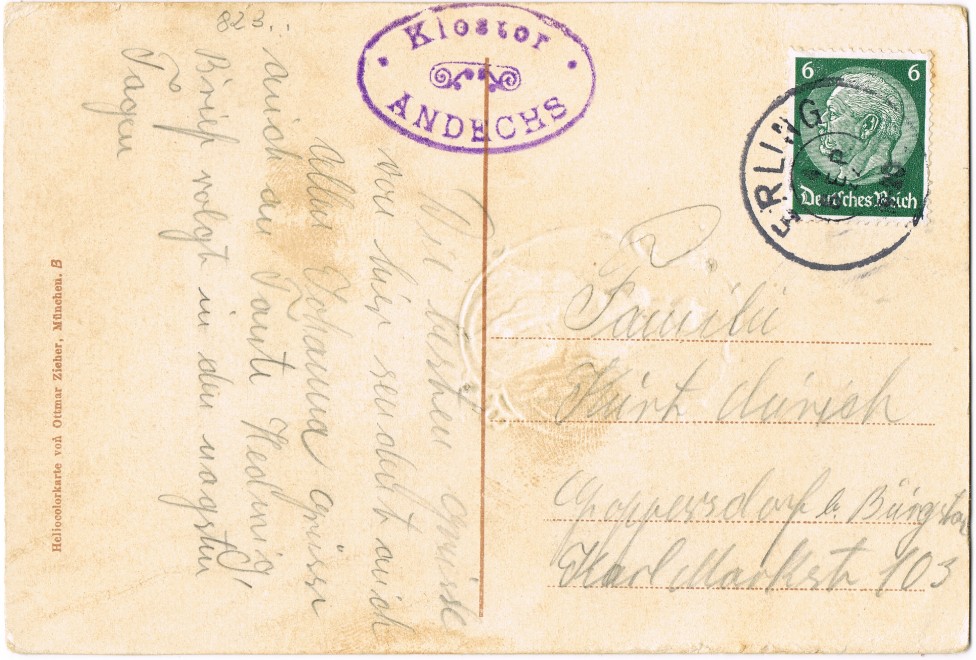 823.
Kloster
ANDECHS
6 6
Deutsches Reich
ERLING
SEP
Die besten Grüsse
von hier sendet euch
Allen Johanna grüsse
auch an Tante Hedwig
Brief volgt in den nagsten
Tagen
Familie
Kurt
Goppersdorf b. Burgstat
Karl Markstr 103
Heliocolorkarte von Ottmar Zieher, München. B